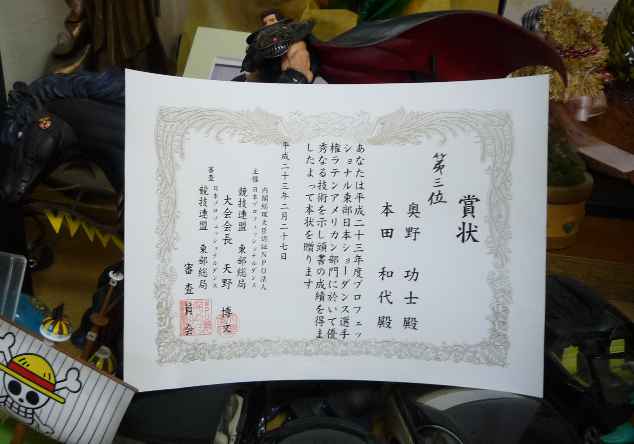 賞状
第三位
奥野 功士 殿
本田 和代 殿
あなたは平成二十三年度プロフェッ
ショナル東部日本ショーダンス選手
権ラテンアメリカン部門に於いて優
秀なる技術を示し頭書の成績を得ま
したよって本状を贈ります
平成二十三年二月二十七日
内閣総理大臣認証NPO法人
主催 日本プロフェッショナルダンス
競技連盟 東部総局
大会会長 天野 博文
審査 日本プロフェッショナルダンス
競技連盟 東部総局
審査員会